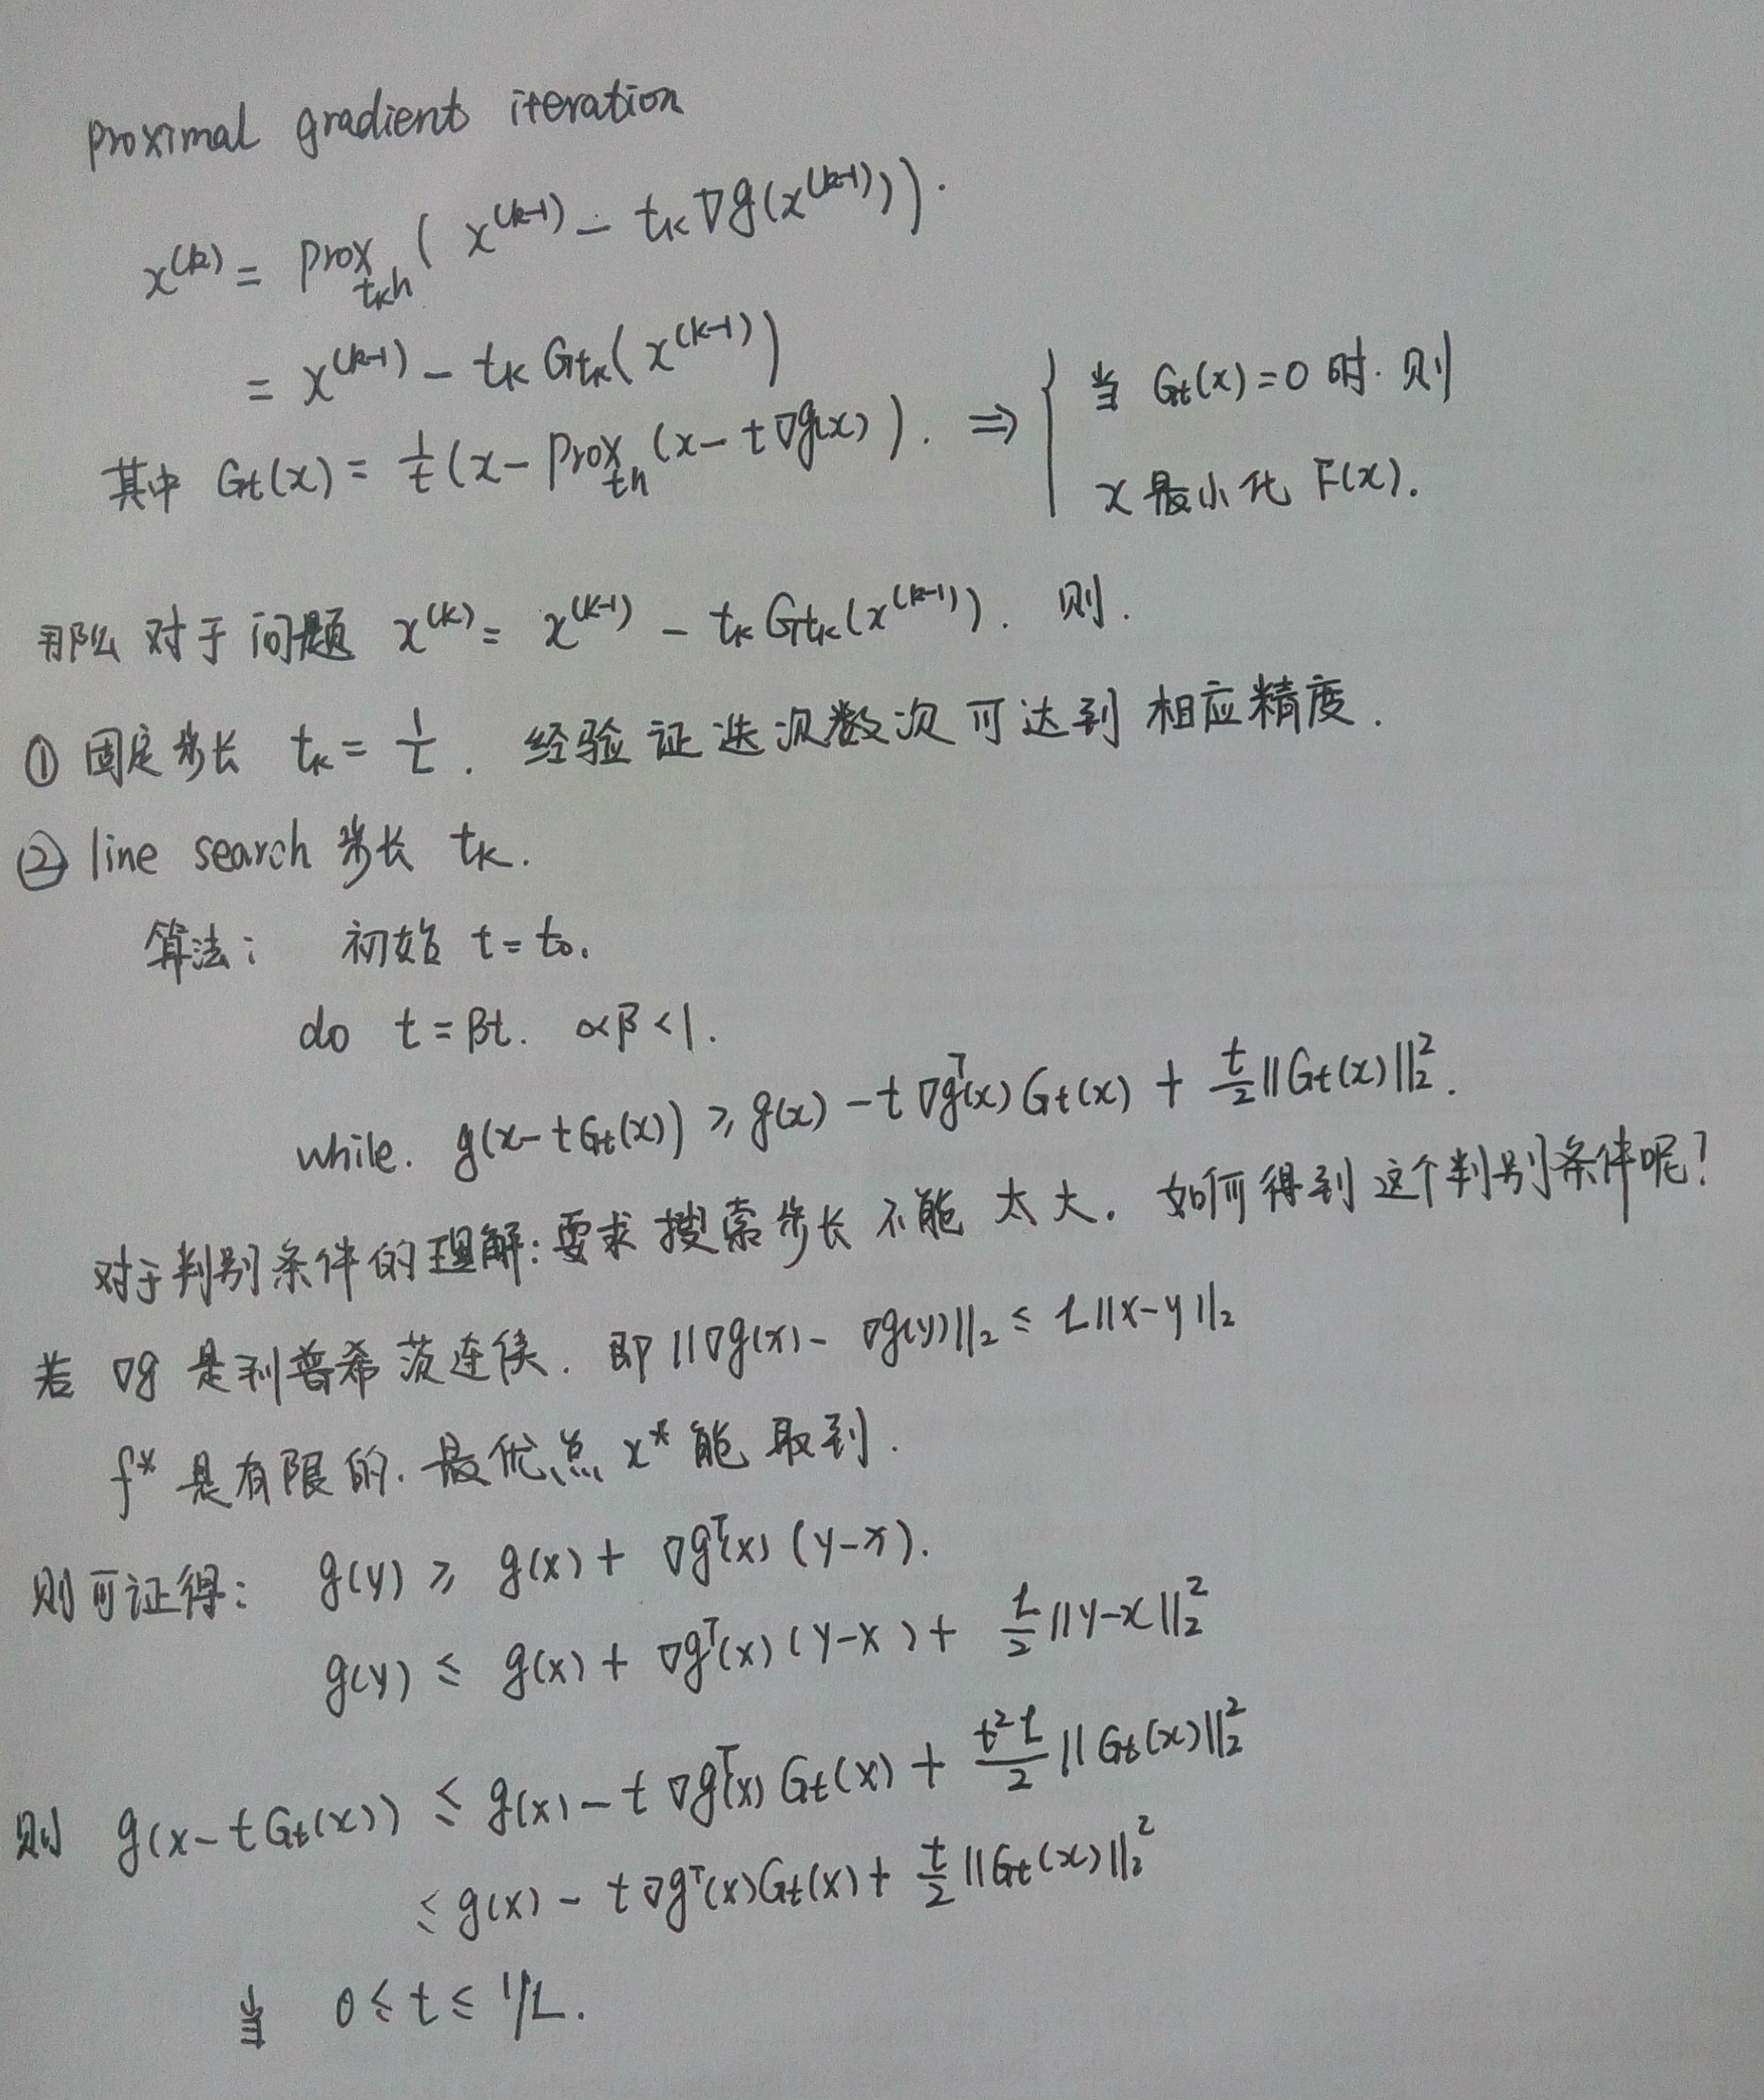 proximal gradient iteration
x^(k) = prox_{t_k h} ( x^(k-1) - t_k ∇g(x^(k-1)) ).
= x^(k-1) - t_k G_{t_k}( x^(k-1) )
其中 G_t(x) = 1/t (x - prox_{th} (x - t∇g(x) ). ⇒ { 当 G_t(x) = 0 时. 则
x 最小化 F(x).
那么 对于 问题 x^(k) = x^(k-1) - t_k G_{t_k}(x^(k-1)). 则.
① 固定步长 t_k = 1/L. 经验证迭次数次可达到相应精度.
② line search 步长 t_k.
算法: 初始 t = t_0.
do t = βt. αβ < 1.
while. g(x - tG_t(x)) ≥ g(x) - t∇g^T(x) G_t(x) + t/2 ||G_t(x)||_2^2.
对于判别条件的理解: 要求搜索步长不能太大. 如何得到这个判别条件呢?
若 ∇g 是利普希茨连续. 即 ||∇g(x) - ∇g(y)||_2 ≤ L||x-y||_2
f* 是有限的. 最优点 x* 能取到.
则可证得: g(y) ≥ g(x) + ∇g^T(x) (y-x).
g(y) ≤ g(x) + ∇g^T(x) (y-x) + L/2 ||y-x||_2^2
则 g(x - tG_t(x)) ≤ g(x) - t∇g^T(x) G_t(x) + t^2L/2 ||G_t(x)||_2^2
≤ g(x) - t∇g^T(x)G_t(x) + t/2 ||G_t(x)||_2^2
当 0 ≤ t ≤ 1/L.